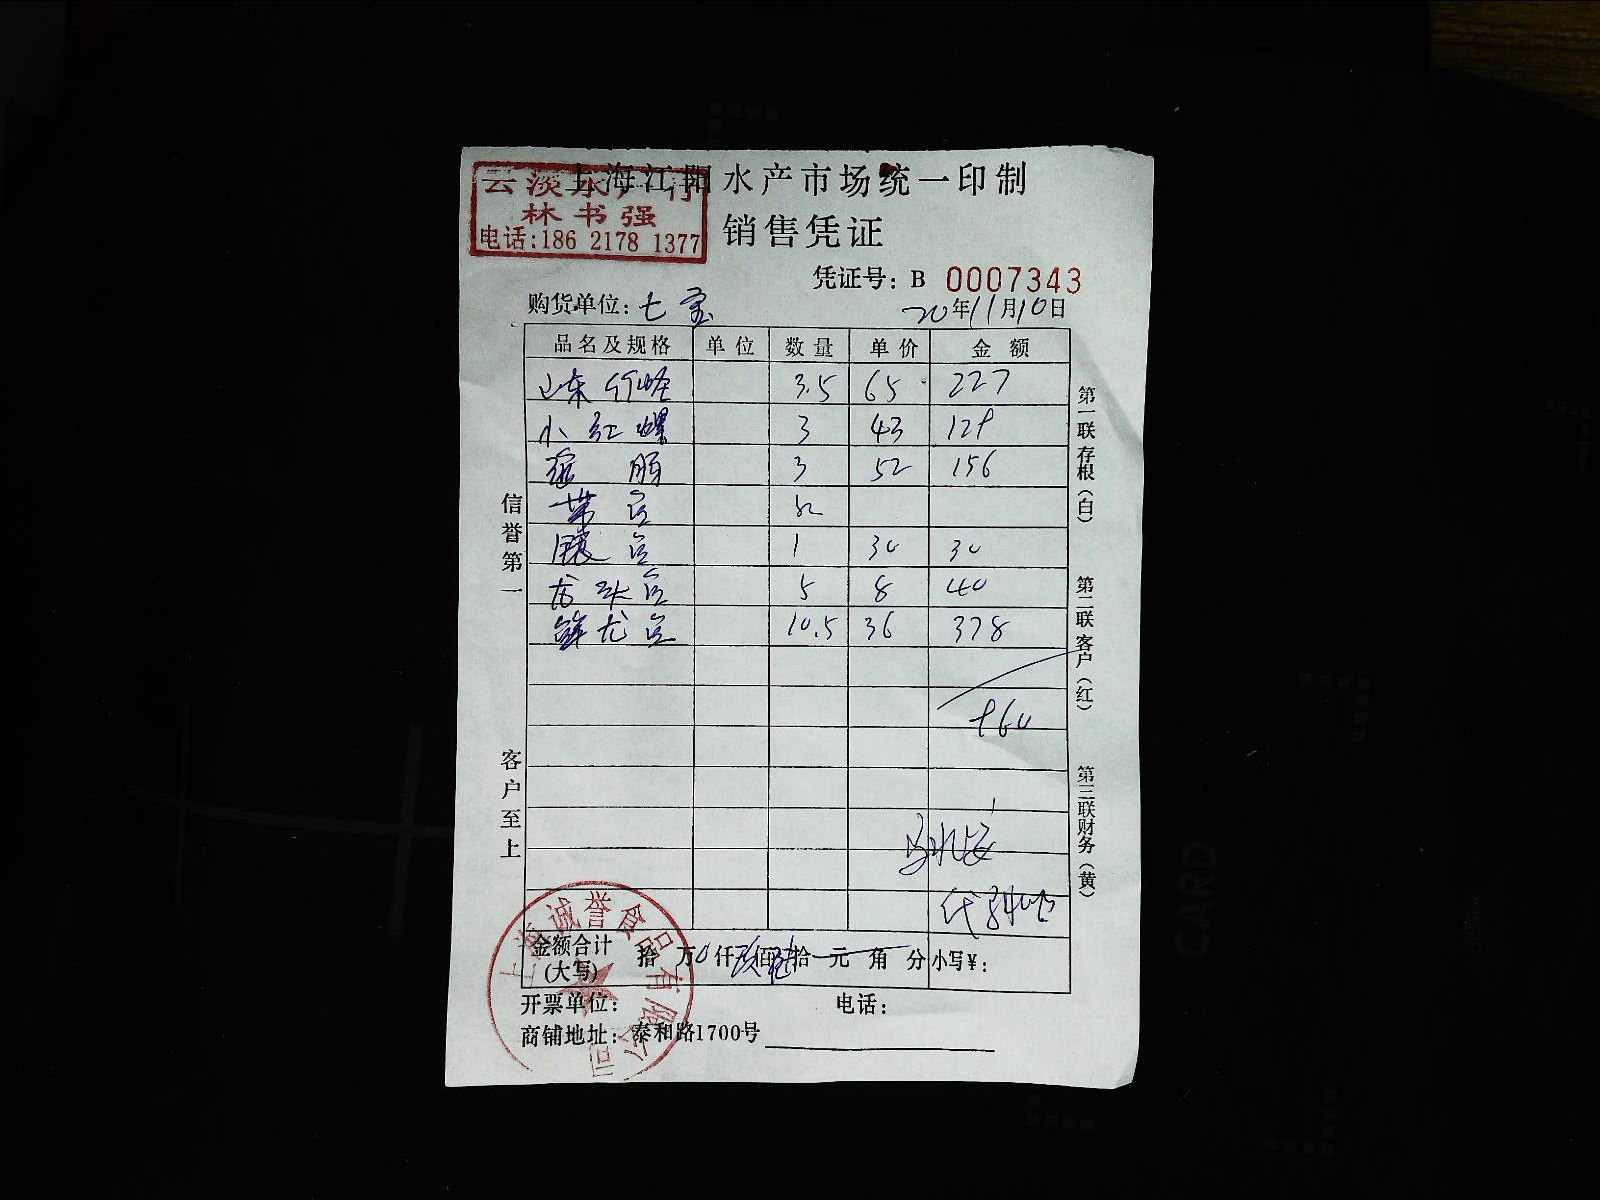 上海江阳水产市场统一印制
云淡水产行
林书强
电话:186 2178 1377
销售凭证
凭证号: B 0007343
购货单位: 七宝
20年11月10日
品名及规格 单位 数量 单价 金额
山东竹蛏 3.5 65 227
小红螺 3 43 129
3 52 156
带鱼
1 30 30
龙头鱼 5 8 40
鲜龙鱼 10.5 36 378
960
金额合计(大写) 拾 万0仟玖佰陆拾 元 角 分 小写¥:
开票单位: 电话:
商铺地址: 泰和路1700号
信誉第一
客户至上
第一联存根(白)
第二联客户(红)
第三联财务(黄)
上海诚誉食品有限公司